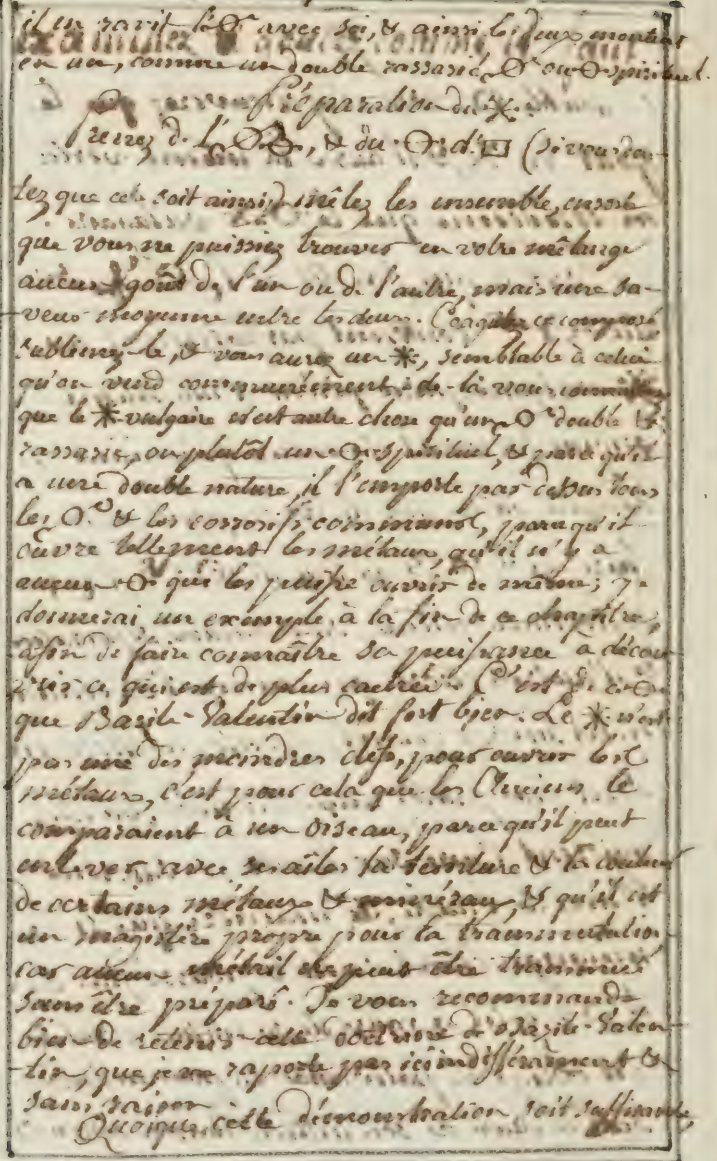 il en ravit le 🜔 avec soi, & ainsi les deux montent
en un, comme un double rassasié 🜔 ou 🜔 spirituel.
Préparation du ✳.
Prenez de l', & du 🜔 d'□ (si vous vou-
lez que cela soit ainsi) mêlez les ensemble, ensorte
que vous ne puissiez trouver en votre mêlange
aucun goût de l'un ou de l'autre, mais une sa-
veur moyenne entre les deux. Coagulez ce composé
sublimez-le, & vous aurez un ✳, semblable à celui
qu'on vend communément, de-là vous
que le ✳ vulgaire n'est autre chose qu'un 🜔 double &
rassasié, ou plutôt un 🜔 spirituel, & parce qu'il
a une double nature, il l'emporte par dessus tous
les 🜔 & les corrosifs communs, parce qu'il
ouvre tellement les métaux, qu'il n'y a
aucun 🜔 qui les puisse ouvrir de même; je
donnerai un exemple à la fin de ce chapitre,
afin de faire connaître sa puissance à décou-
vrir ce qui est de plus caché. C'est de ce 🜔
que Bazile-Valentin dit fort bien. Le ✳ n'est
pas une des moindres clefs, pour ouvrir les
métaux, c'est pour cela que les Anciens le
comparaient à un oiseau, parce qu'il peut
enlever avec ses aîles la teinture & la couleur
de certains métaux & minéraux, & qu'il est
un magistère propre pour la transmutation
car aucun métail ne peut être transmué
sans être préparé. Je vous recommande
bien de retenir cette doctrine de Bazile-Valen-
tin, que je ne raporte pas ici indifféramment &
sans raison
Quoique cette démonstration soit suffisante,